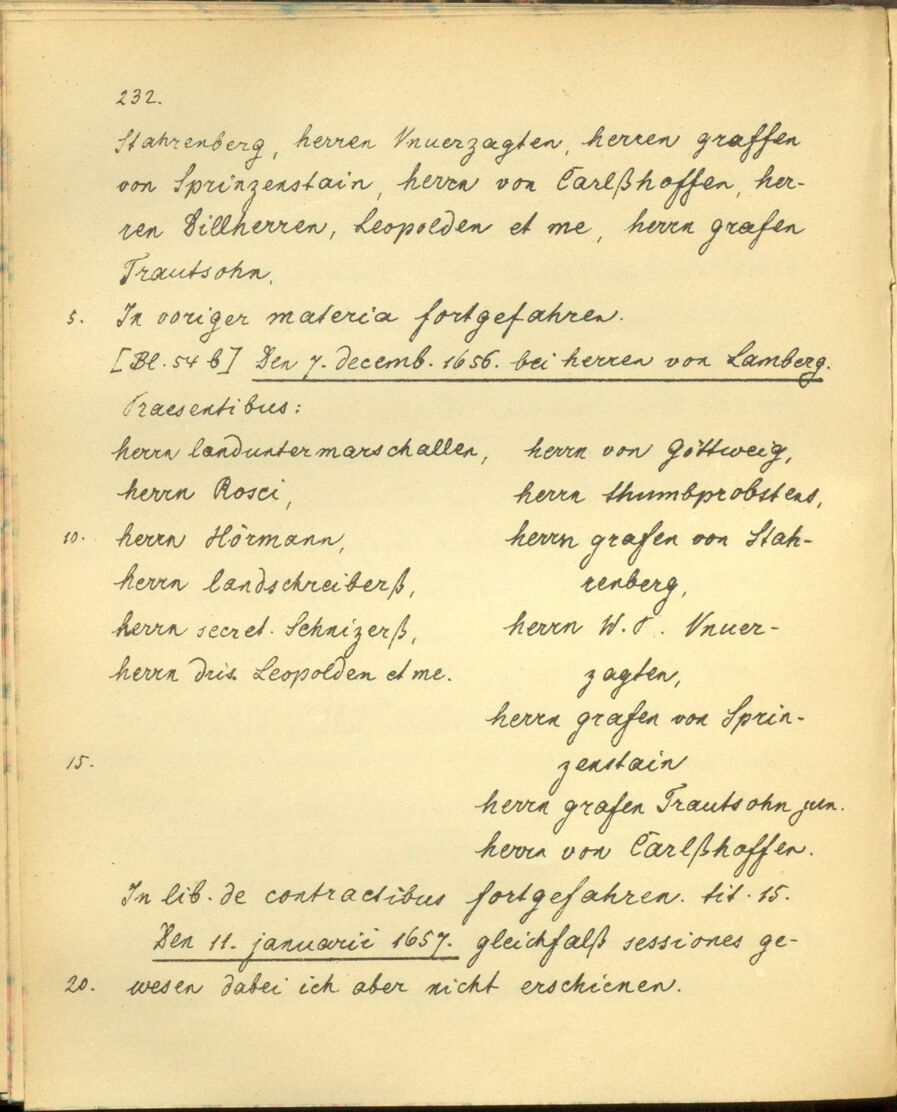 232.
Stahrenberg, herren Vnuerzagten, herren graffen
von Sprinzenstain, herrn von Carlßhoffen, her-
ren Dillherren, Leopolden et me, herrn grafen
Trautsohn.
5. In voriger materia fortgefahren.
[Bl. 54 b] Den 7. decemb. 1656. bei herren von Lamberg.
Praesentibus:
herrn landuntermarschallen, herrn von Göttweig,
herrn Rosci, herrn thumbprobstens,
10. herrn Hörmann, herrn grafen von Stah-
herrn landschreiberß, renberg,
herrn secret. Schnizerß, herrn W. Vnuer-
herrn dris. Leopolden et me. zagten,
herrn grafen von Sprin-
15. zenstain
herrn grafen Trautsohn jun.
herrn von Carlßhoffen.
In lib. de contractibus fortgefahren. tit. 15.
Den 11. januarii 1657. gleichfalß sessiones ge-
20. wesen dabei ich aber nicht erschienen.